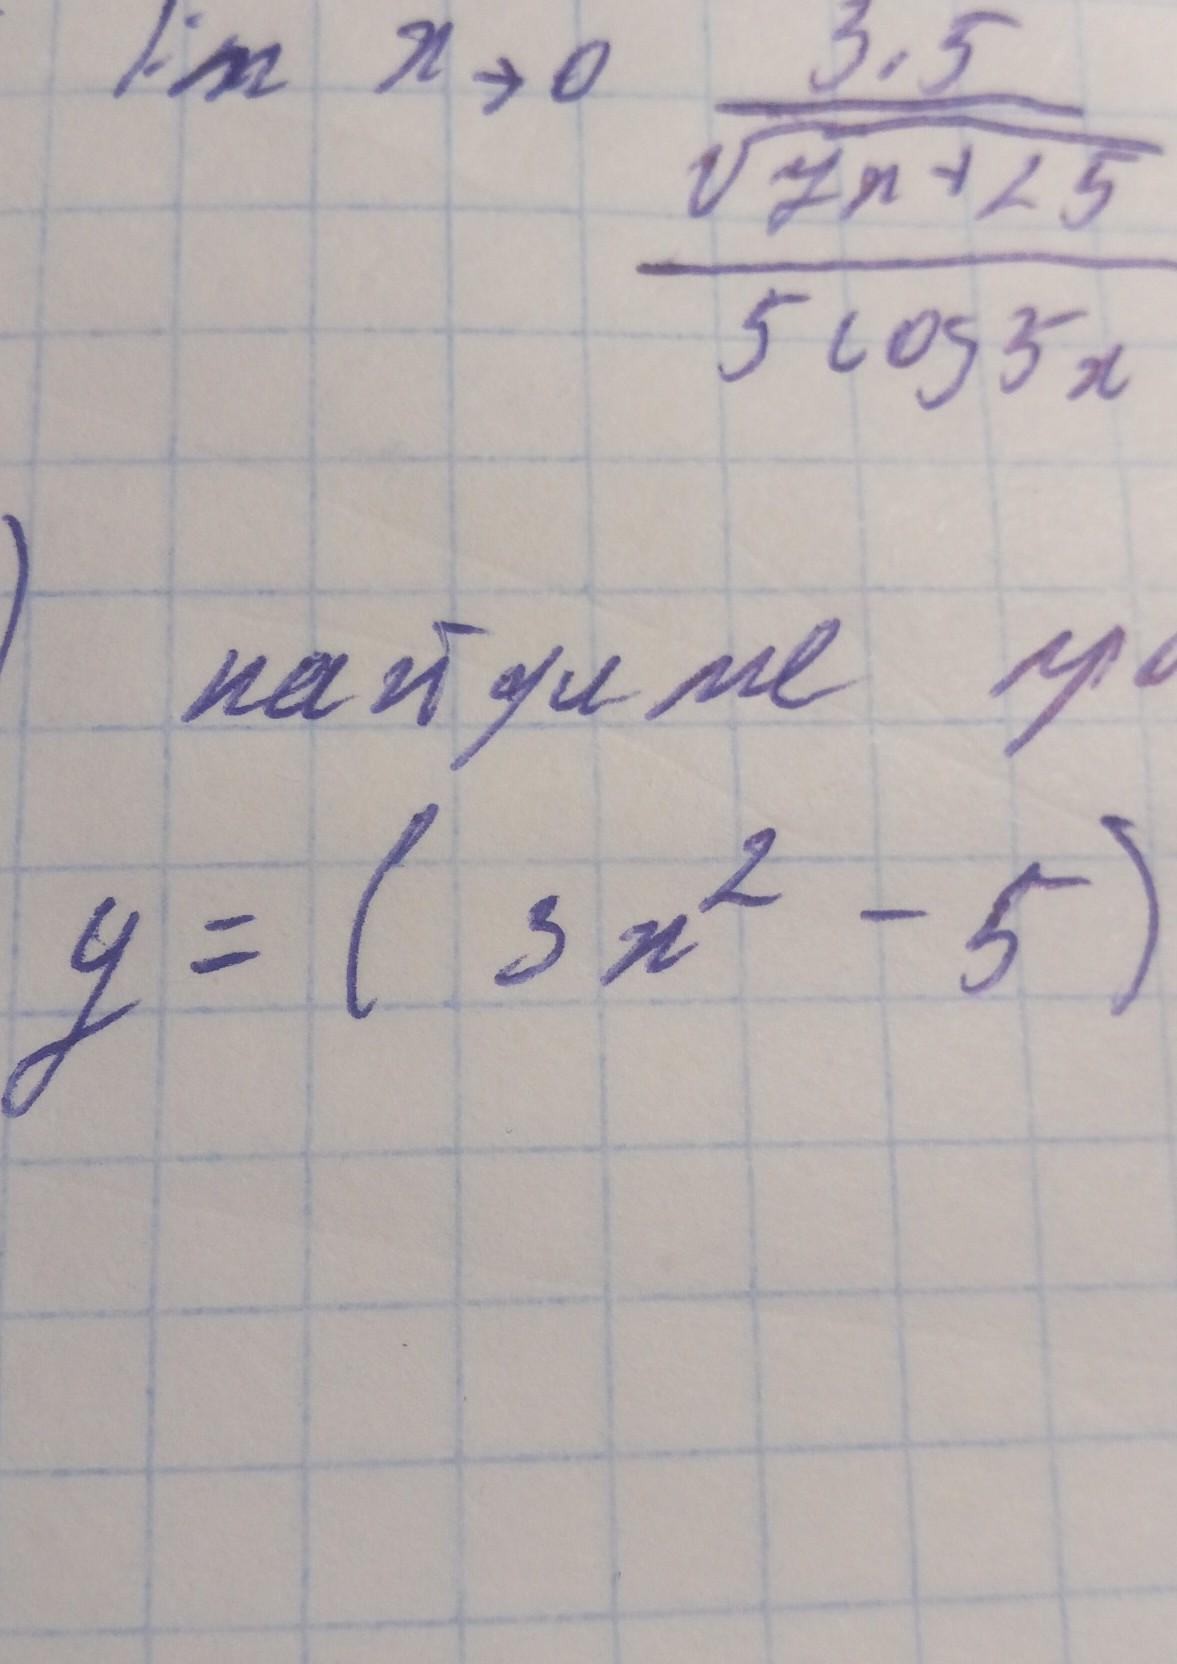 lim x→0 3.5
√7x+25
5 cos 5x
)
найдите
y = ( 3x² - 5 )